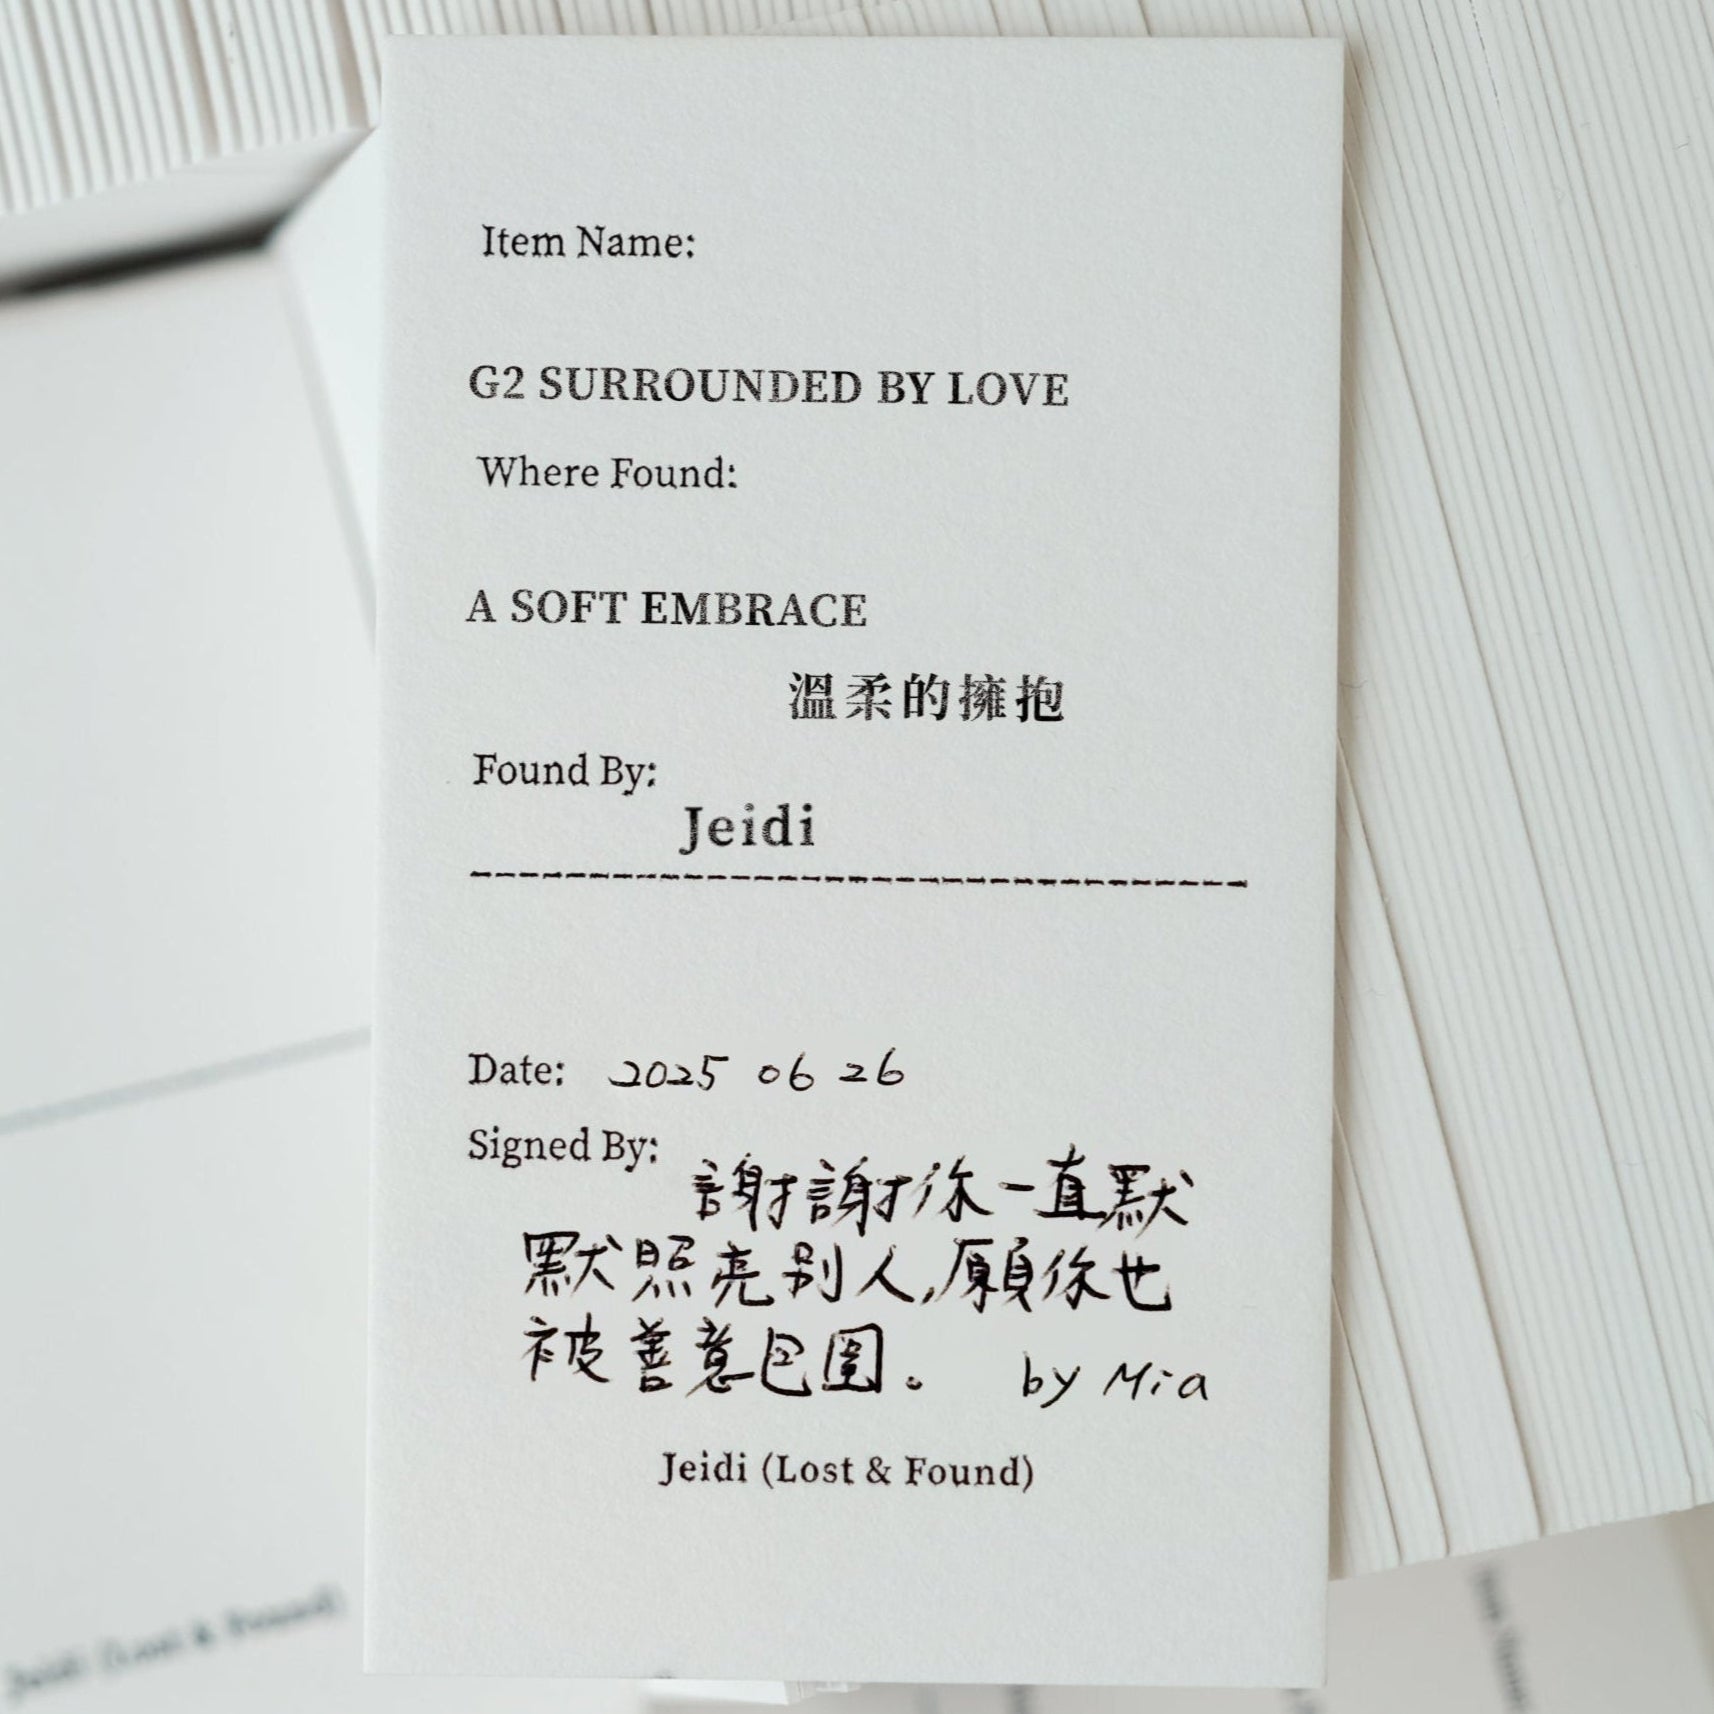 Item Name:
G2 SURROUNDED BY LOVE
Where Found:
A SOFT EMBRACE
溫柔的擁抱
Found By:
Jeidi
Date: 2025 06 26
Signed By:
謝謝你一直默
默照亮別人,願你也
被善意包圍。 by Mia
Jeidi (Lost & Found)
Jeidi (Lost & Found)